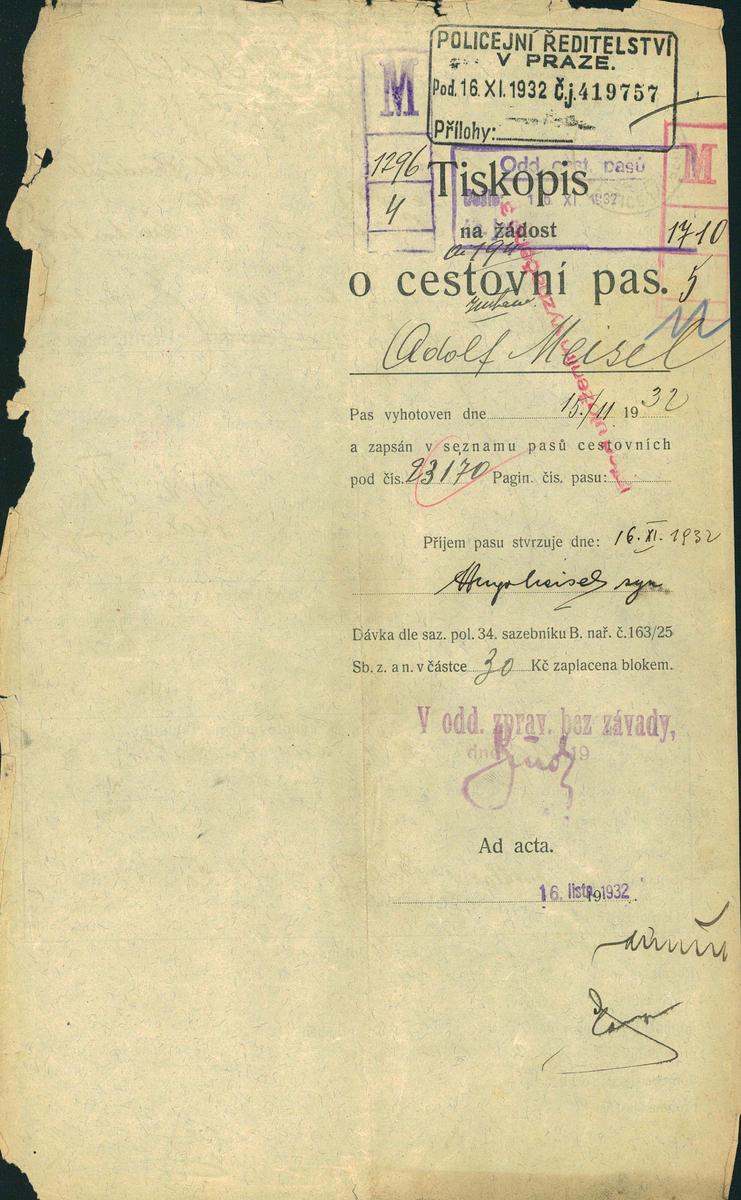 POLICEJNÍ ŘEDITELSTVÍ
V PRAZE.
Pod. 16. XI. 1932 Č.j. 419757
Přílohy:
M
1296
4
Odd. cest. pasů
M
1710
5
Tiskopis
na žádost
o cestovní pas.
Adolf Meisel
Pas vyhotoven dne 15./11 1932
a zapsán v seznamu pasů cestovních
pod čís. 23170 Pagin. čís. pasu:
Příjem pasu stvrzuje dne: 16. XI. 1932
Hugo Meisel syn
Dávka dle saz. pol. 34. sazebníku B. nař. č. 163/25
Sb. z. a n. v částce 30 Kč zaplacena blokem.
V odd. zprav. bez závady,
dne 19
Ad acta.
16. listp. 1932